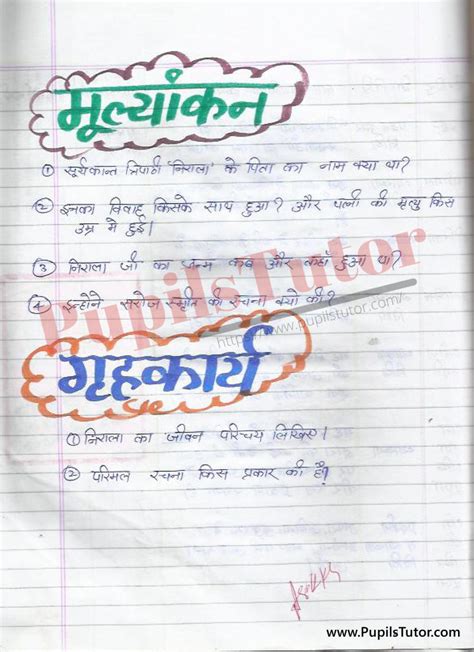 मूल्यांकन
① सूर्यकान्त त्रिपाठी 'निराला' के पिता का नाम क्या था?
② इनका विवाह किसके साथ हुआ? और पत्नी की मृत्यु किस
उम्र में हुई।
③ निराला जी का जन्म कब और कहाँ हुआ था?
④ इन्होंने सरोज स्मृति की रचना क्यों की?
PupilsTutor
https://www.pupilstutor.com/
गृहकार्य
① निराला का जीवन परिचय लिखिए।
② परिमल रचना किस प्रकार की है?
www.PupilsTutor.com